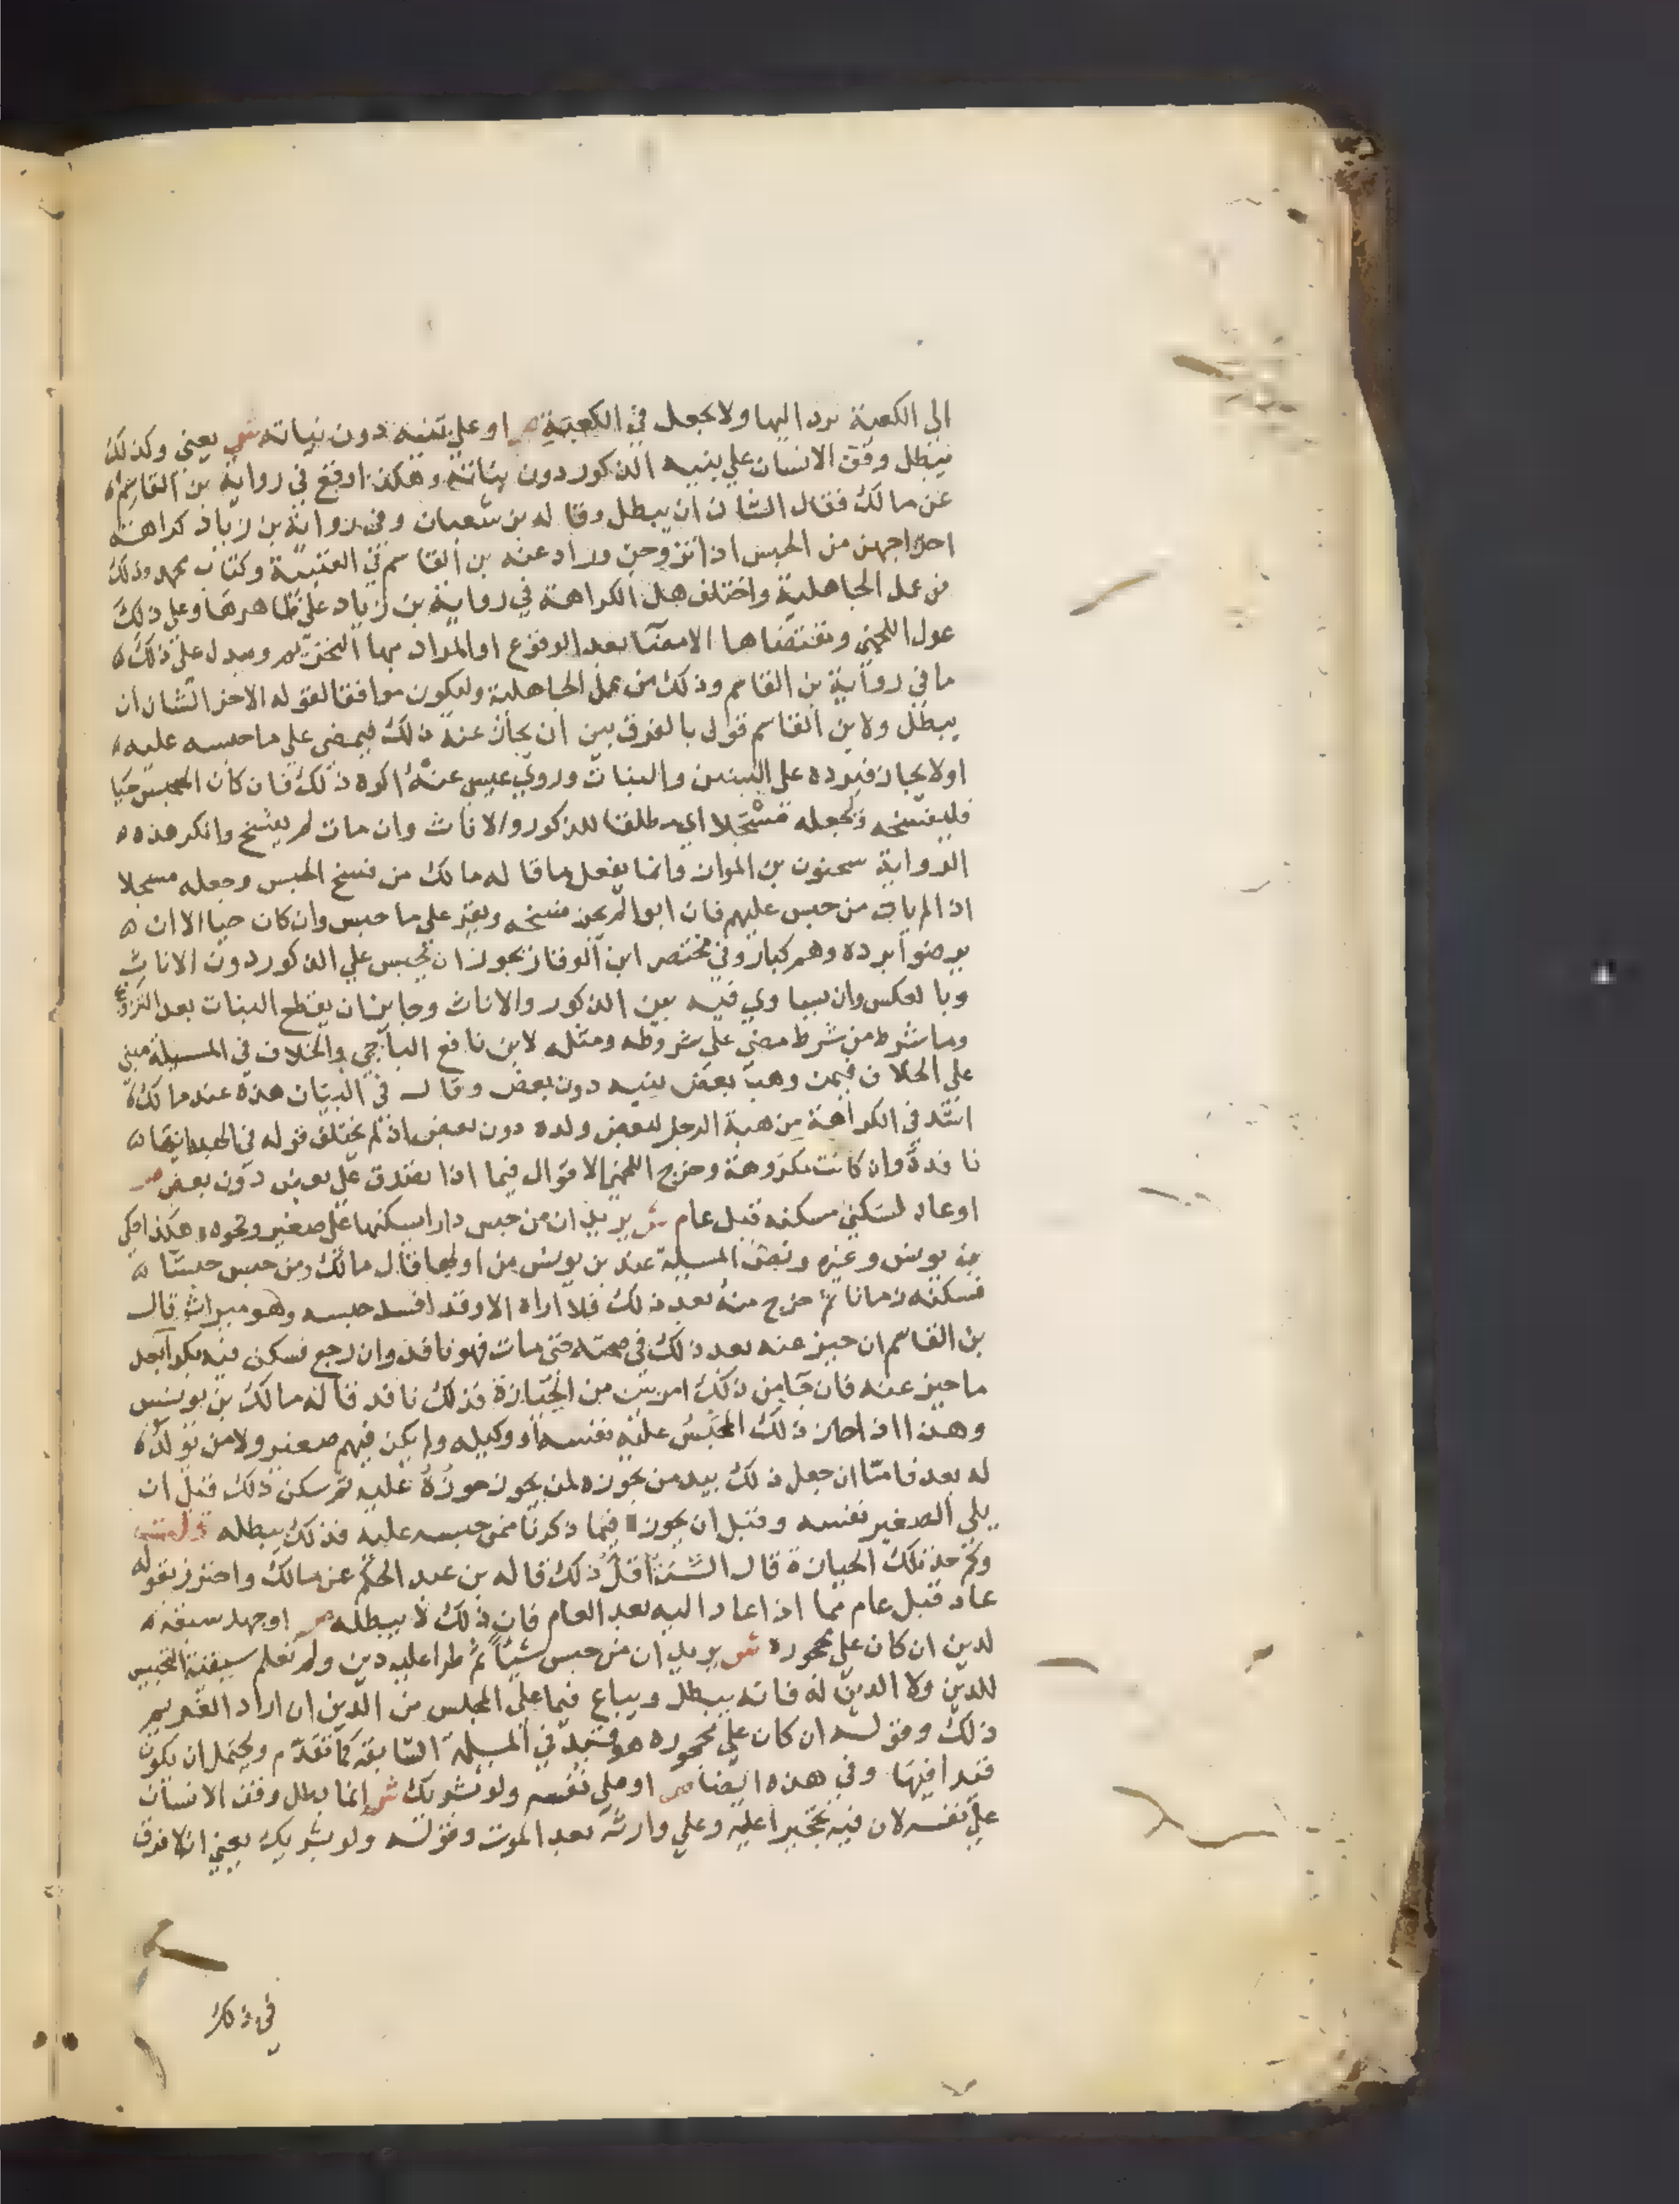 الي الكعبة يرد اليها ولا يجعل في الكعبة ص او علي بنيه دون بناته ش يعني وكذلك
يبطل وقف الانسان علي بنيه الذكور دون بناته وهكذا وقع في رواية بن القاسم
عن مالك فقال الشان ان يبطل وقاله بن شعبان وفي رواية بن زياد كراهة
اخراجهن من الحبس اذا تزوجن وزاد عنه بن القاسم في العتبية وكتاب محمد وذلك
من عمل الجاهلية واختلف هل الكراهة في رواية بن زياد علي ظاهرها وعلي ذلك
عول اللخمي ومقتضاها الامضا بعد الوقوع او المراد بها التحريم ويدل علي ذلك
ما في رواية بن القاسم وذلك من عمل الجاهلية وليكون موافقا لقوله الاخر الشان ان
يبطل ولابن القاسم قول بالفرق بين ان يحاز عنه ذلك فيمضي علي ما حبسه عليه
اولا يحاز فيرده علي البنين والبنات وروي عيسي عنه اكره ذلك فان كان المحبس حيا
فليفسخه وليجعله مسجلا اي مطلقا للذكور والاناث وان مات لم يفسخ وانكر هذه
الرواية سحنون بن المواز وانما يفعل ما قاله مالك من فسخ الحبس وجعله مسجلا
اذا لم ياب من حبس عليهم فان ابوا لم يجز فسخه ويقر علي ما حبس وان كان حيا الا ان
يرضوا برده وهم كبار وفي مختصر ابن الوقار يجوز ان يحبس علي الذكور دون الاناث
وبالعكس وان يساوي فيه بين الذكور والاناث وجايز ان يقطع البنات بعد التزويج
وما شرط من شرط مضي علي شروطه ومثله لابن نافع الباجي والخلاف في المسيلة مبني
علي الخلاف فيمن وهب بعض بنيه دون بعض وقال في البيان هذه عند مالك
اشد في الكراهة من هبة الرجل لبعض ولده دون بعض اذ لم يختلف قوله في الهبة انها
نافذة وان كانت مكروهة وخرج اللخمي الاقوال فيما اذا تصدق علي بعض دون بعض ص
او عاد لسكني مسكنه قبل عام ش يريد ان من حبس دارا يسكنها علي صغير ونحوه هكذا حكي
بن يونس وغيره ونص المسيلة عند بن يونس من اولها قال مالك ومن حبس حبسا
فسكنه زمانا ثم خرج منه بعد ذلك فلا اراه الا وقد افسد حبسه وهو ميراث قال
بن القاسم ان حيز عنه بعد ذلك في صحته حتي مات فهو نافذ وان رجع فسكن فيه بكرا بعد
ما حيز عنه فان جا من ذلك امر بين من الحيازة فذلك نافذ قاله مالك بن يونس
وهذا اذا حاز ذلك المحبس عليه نفسه او وكيله ولم يكن فيهم صغير ولا من يولد
له بعد فاما ان جعل ذلك بيد من يحوزه لمن يجوز حوزه عليه ثم سكن ذلك قبل ان
يلي الصغير نفسه وقبل ان يحوز فيما ذكرنا ممن حبسه عليه فذلك يبطله
وكم حد تلك الحيازة قال السنة اقل ذلك قاله بن عبد الحكم عن مالك واحترز بقوله
عاد قبل عام مما اذا عاد اليه بعد العام فان ذلك لا يبطله ص او جهل سبقه
لدين ان كان علي محجوره ش يريد ان من حبس شيئا ثم طرا عليه دين ولم نعلم سبقية التحبيس
للدين ولا الدين له فانه يبطل ويباع فيما علي المحبس من الدين ان اراد الغريم
ذلك وقوله ان كان علي محجوره هو قيد في المسيلة السابقة كما تقدم ويحتمل ان يكون
قيدا فيها وفي هذه ايضا ص او علي نفسه ولو بشريك ش انما بطل وقف الانسان
علي نفسه لان فيه تحجيرا عليه وعلي وارثه بعد الموت وقوله ولو بشريك يعني انه لا فرق
في ذلك